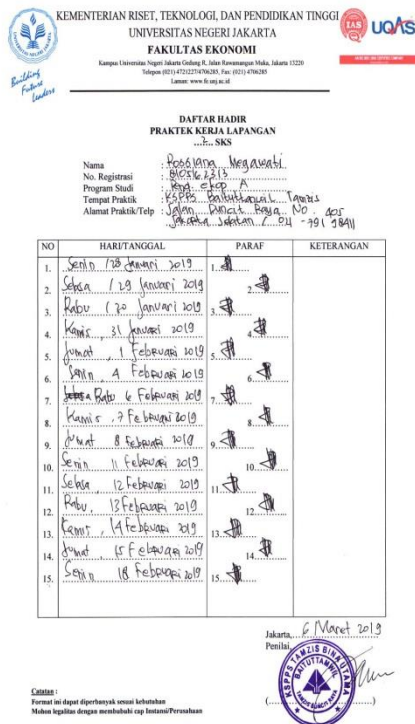 KEMENTERIAN RISET, TEKNOLOGI, DAN PENDIDIKAN TINGGI
UNIVERSITAS NEGERI JAKARTA
FAKULTAS EKONOMI
Kampus Universitas Negeri Jakarta Gedung R, Jalan Rawamangun Muka, Jakarta 13220
Telepon (021) 4721227/4706285, Fax: (021) 4706285
Laman: www.fe.unj.ac.id
Building
Future
Leaders
IAS
UQAS
DAFTAR HADIR
PRAKTEK KERJA LAPANGAN
...2... SKS
Nama : Rossiana Megawati
No. Registrasi : 8105162313
Program Studi : Pend. ekop A
Tempat Praktik : KSPPS Baituttamwil Tamzis
Alamat Praktik/Telp : Jalan Buncit Raya No. 405
Jakarta Selatan / 021 - 791 98411
NO HARI/TANGGAL PARAF KETERANGAN
1. Senin / 28 Januari 2019 1.
2. Selasa / 29 Januari 2019 2.
3. Rabu / 30 Januari 2019 3.
4. Kamis, 31 Januari 2019 4.
5. Jumat, 1 Februari 2019 5.
6. Senin, 4 Februari 2019 6.
7. Rabu 6 Februari 2019 7.
8. Kamis, 7 Februari 2019 8.
9. Jumat 8 Februari 2019 9.
10. Senin 11 Februari 2019 10.
11. Selasa, 12 Februari 2019 11.
12. Rabu, 13 Februari 2019 12.
13. Kamis, 14 Februari 2019 13.
14. Jumat, 15 Februari 2019 14.
15. Senin 18 Februari 2019 15.
Jakarta, 6 Maret 2019
Penilai,
KSPPS TAMZIS BINA UTAMA
BAITUTTAMWIL
(....................)
Catatan :
Format ini dapat diperbanyak sesuai kebutuhan
Mohon legalitas dengan membubuhi cap Instansi/Perusahaan